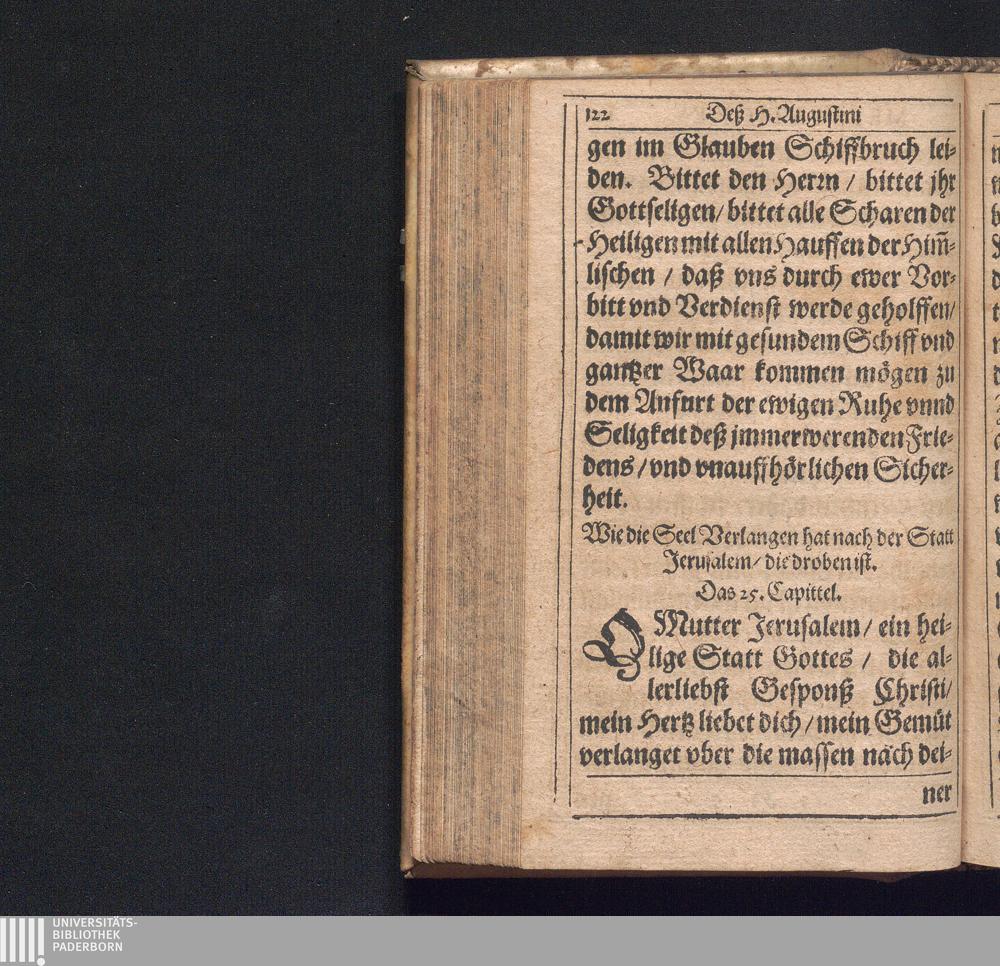 122 Deß H. Augustini
gen im Glauben Schiffbruch lei-
den. Bittet den Herꝛn / bittet jhr
Gottseligen / bittet alle Scharen der
Heiligen mit allen Hauffen der Him̃-
lischen / daß vns durch ewer Vor-
bitt vnd Verdienst werde geholffen /
damit wir mit gesundem Schiff vnd
gantzer Waar kommen mögen zu
dem Anfurt der ewigen Ruhe vnnd
Seligkeit deß jmmerwerenden Frie-
dens / vnd vnauffhörlichen Sicher-
heit.
Wie die Seel Verlangen hat nach der Statt
Jerusalem / die droben ist.
Das 25. Capittel.
O Mutter Jerusalem / ein hei-
lige Statt Gottes / die al-
lerliebst Gesponß Christi /
mein Hertz liebet dich / mein Gemüt
verlanget vber die massen nach dei-
ner
UNIVERSITÄTS-
BIBLIOTHEK
PADERBORN